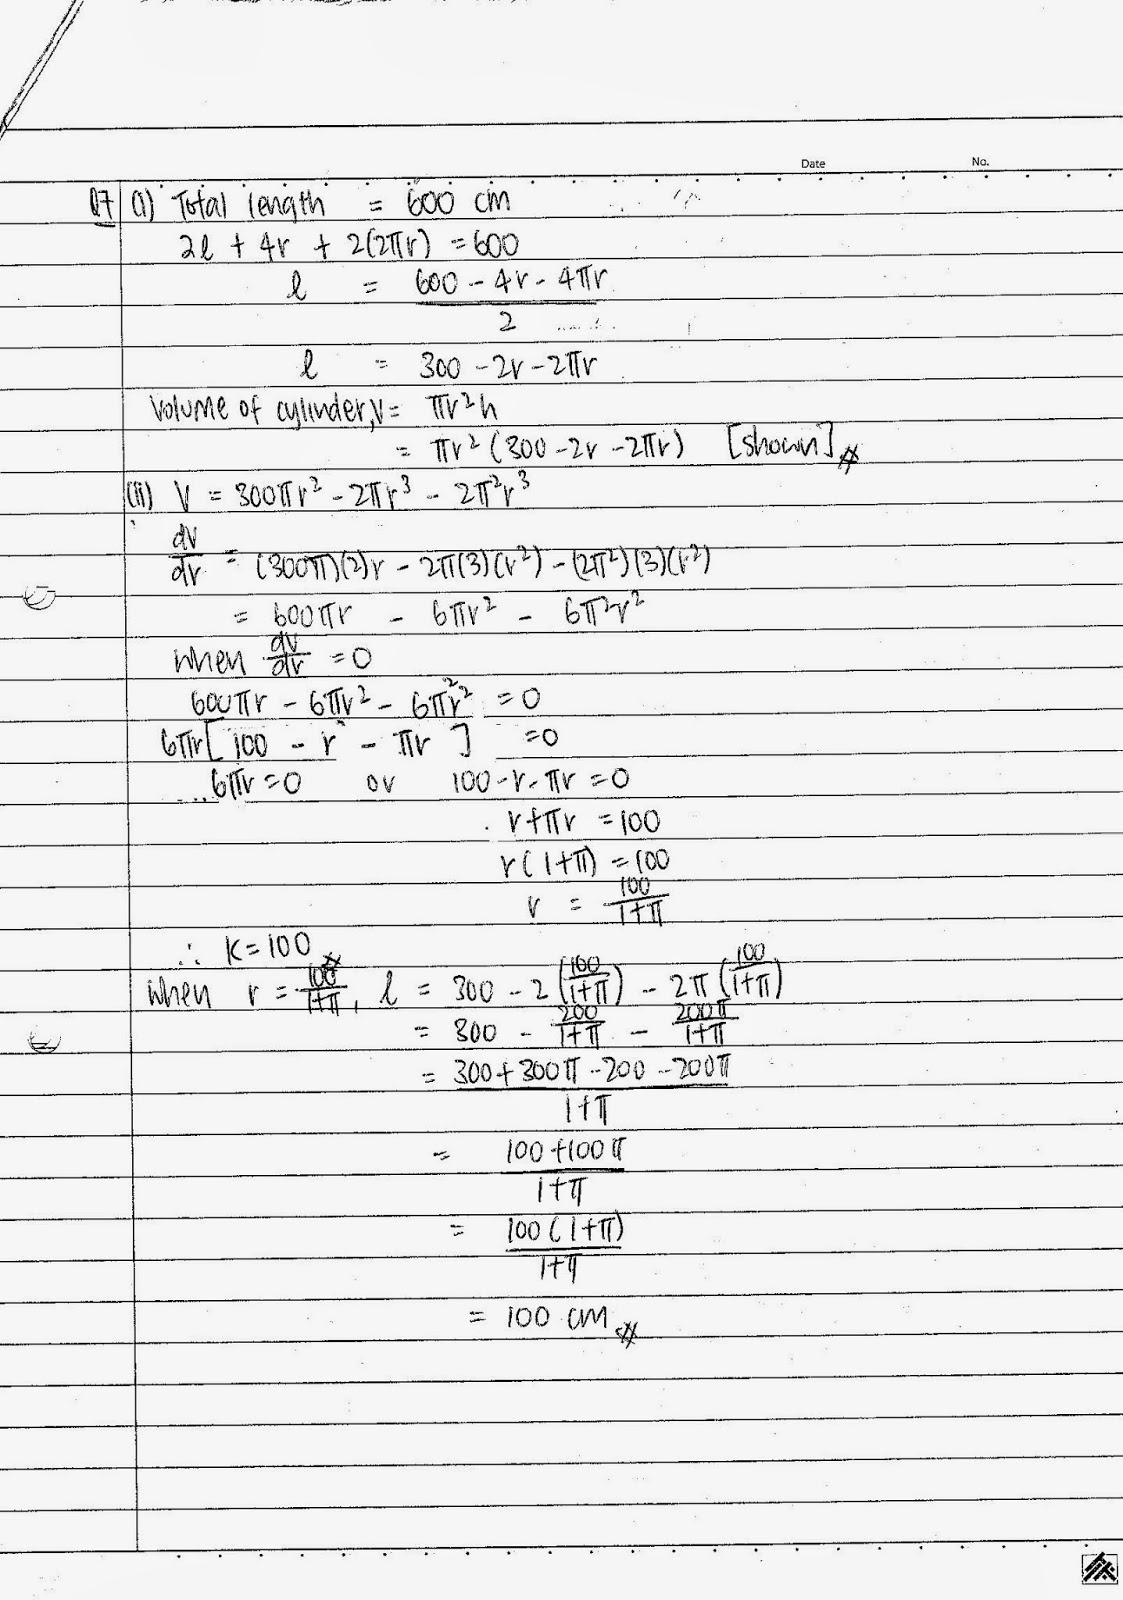 Date No.
Q7 (i) Total length = 600 cm
2l + 4r + 2(2πr) = 600
l = (600 - 4r - 4πr)/2
l = 300 - 2r - 2πr
Volume of cylinder, V = πr²h
= πr² (300 - 2r - 2πr) [shown]
(ii) V = 300πr² - 2πr³ - 2π²r³
dv/dr = (300π)(2)r - 2π(3)(r²) - (2π²)(3)(r²)
= 600πr - 6πr² - 6π²r²
when dv/dr = 0
600πr - 6πr² - 6π²r² = 0
6πr[100 - r - πr] = 0
6πr = 0 or 100 - r - πr = 0
r + πr = 100
r(1+π) = 100
r = 100/(1+π)
∴ K = 100
when r = 100/(1+π), l = 300 - 2(100/(1+π)) - 2π(100/(1+π))
= 300 - 200/(1+π) - 200π/(1+π)
= (300 + 300π - 200 - 200π)/(1+π)
= (100 + 100π)/(1+π)
= 100(1+π)/(1+π)
= 100 cm